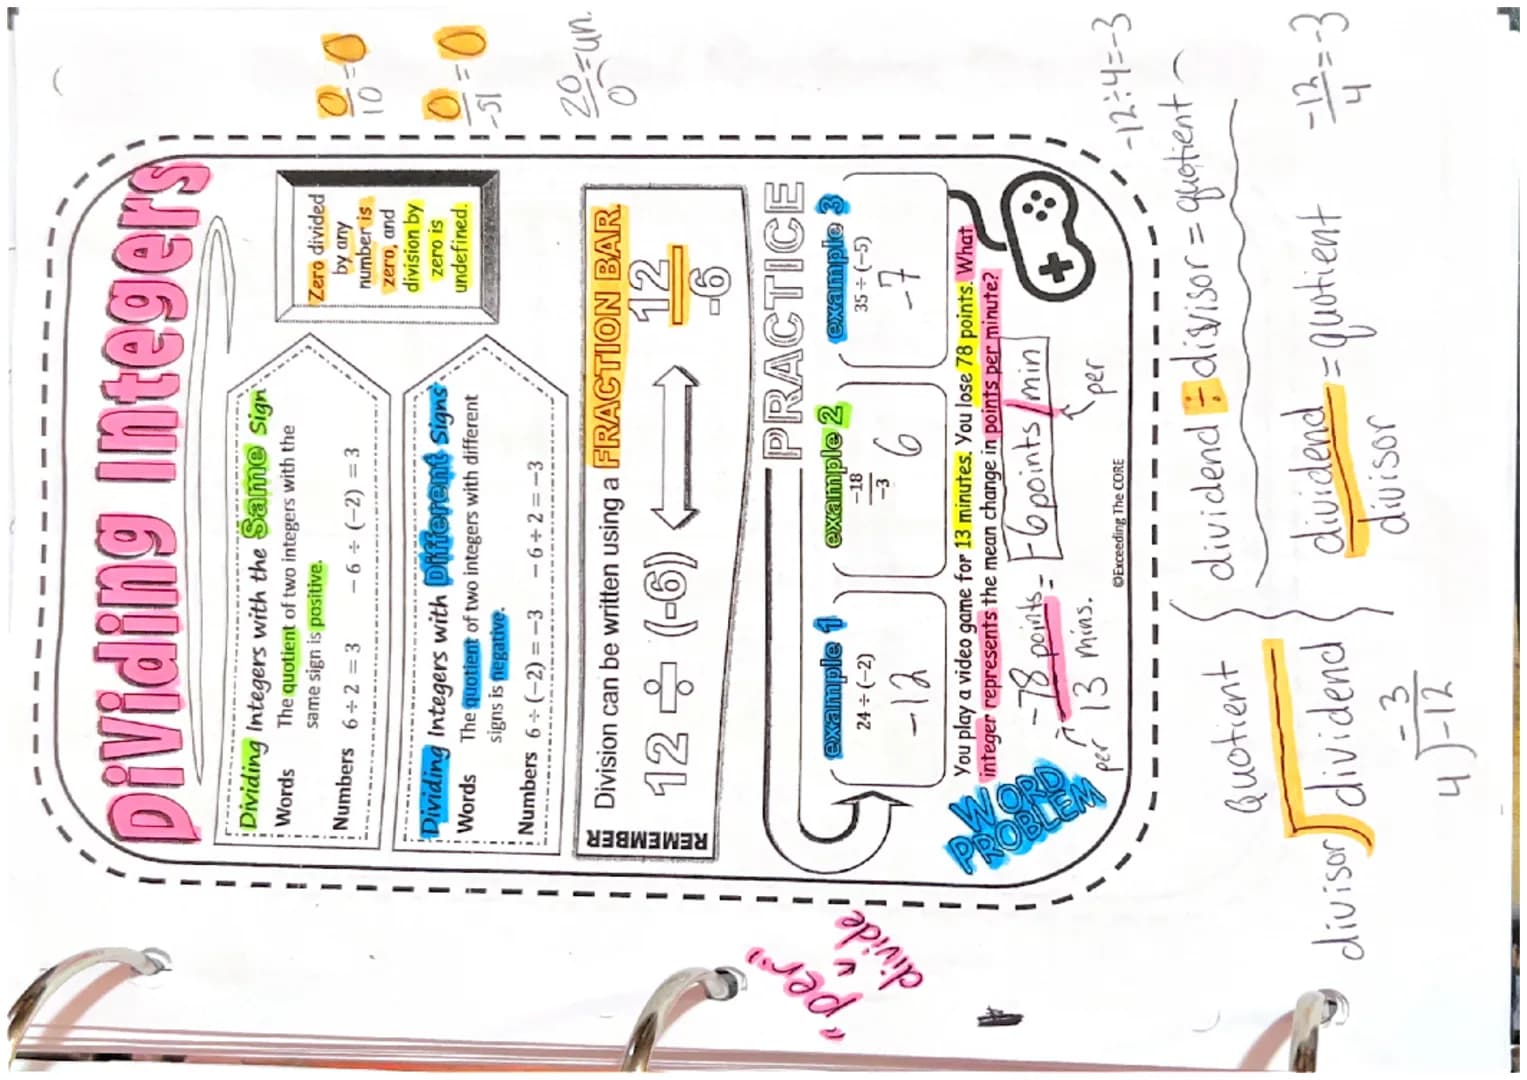 Dividing Integers
0/10 = 0
0/-51 = 0
20/0 = un.
Dividing Integers with the Same Sign
Words The quotient of two integers with the
same sign is positive.
Numbers 6 ÷ 2 = 3 -6 ÷ (-2) = 3
Zero divided
by any
number is
zero, and
division by
zero is
undefined.
Dividing Integers with Different Signs
Words The quotient of two integers with different
signs is negative.
Numbers 6 ÷ (-2) = -3 -6 ÷ 2 = -3
REMEMBER
Division can be written using a FRACTION BAR.
12 ÷ (-6)
12
-6
PRACTICE
example 1
24 ÷ (-2)
-12
example 2
-18
-3
6
example 3
35 ÷ (-5)
-7
WORD
PROBLEM
You play a video game for 13 minutes. You lose 78 points. What
integer represents the mean change in points per minute?
-78 points = -6 points/min
per 13 mins.
per
©Exceeding The CORE
"per"
divide
-12÷4=-3
dividend ÷ divisor = quotient
quotient
divisor dividend
dividend = quotient
divisor
-12/4 = -3
-3
4)-12